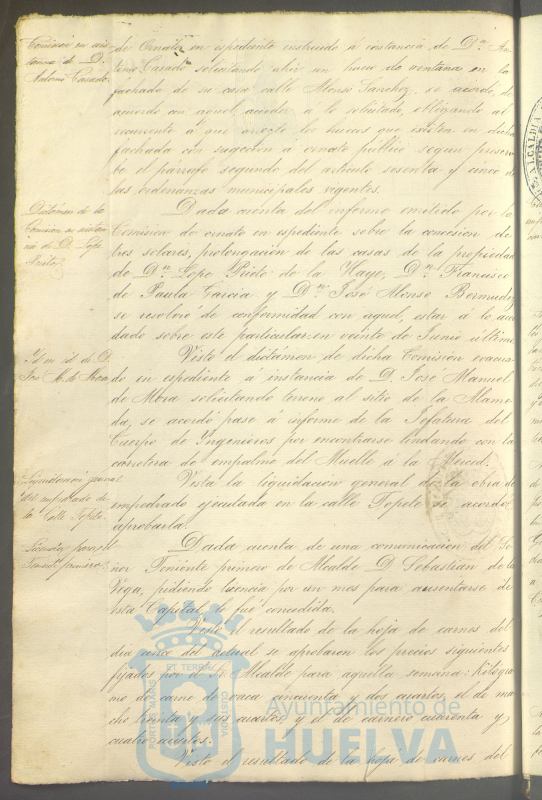 Comision en ins-
tancia de D.
Antonio Casado.
de Ornato en espediente instruido á instancia de Dn. An-
tonio Casado solicitando abrir un hueco de ventana en la
fachada de su casa calle Alonso Sanchez, se acordó, de
acuerdo con aquel acceder á lo solicitado, obligando al
recurrente á que arregle los huecos que existen en dicha
fachada con sugecion á ornato público segun prescri-
be el párrafo segundo del artículo sesenta y cinco de
las ordenanzas municipales vigentes.
Dictámen de la
Comision en instan-
cia de D. Lope
Prieto.
Dada cuenta del informe emitido por la
Comision de ornato en espediente sobre la concesion de
tres solares, prolongacion de las casas de la propiedad
de Dn. Lope Prieto de la Haye, Dn. Francisco
de Paula Garcia y Dn. José Alonso Bermudez
se resolvió de conformidad con aquel, estar á lo acor-
dado sobre este particular en veinte de Junio último.
Id. en id. de D.
José M. de Mora
Visto el dictámen de dicha Comision evacua-
do en espediente á instancia de D. José Manuel
de Mora solicitando terreno al sitio de la Alame-
da, se acordó pase á informe de la Jefatura del
Cuerpo de Ingenieros por encontrarse lindando con la
carretera de empalme del Muelle á la Merced.
Liquidacion general
del empedrado de
la Calle Topete.
Vista la liquidacion general de la obra de
empedrado ejecutada en la calle Topete se acordó
aprobarla.
Licencia para el
Teniente primero.
Dada cuenta de una comunicacion del Se-
ñor Teniente primero de Alcalde D. Sebastian de la
Vega, pidiendo licencia por un mes para ausentarse de
esta Capital, le fué concedida.
Visto el resultado de la hoja de carnes del
dia cinco del actual se aprobaron los precios siguientes
fijados por el Sr. Alcalde para aquella semana: Kilogra-
mo de carne de vaca cincuenta y dos cuartos, el de ma-
cho treinta y seis cuartos, y el de carnero cuarenta y
cuatro cuartos.
Visto el resultado de la hoja de carnes del
PORTUS MARIS
ET TERRAE
CUSTODIA
Ayuntamiento de
HUELVA
ALCALDIA